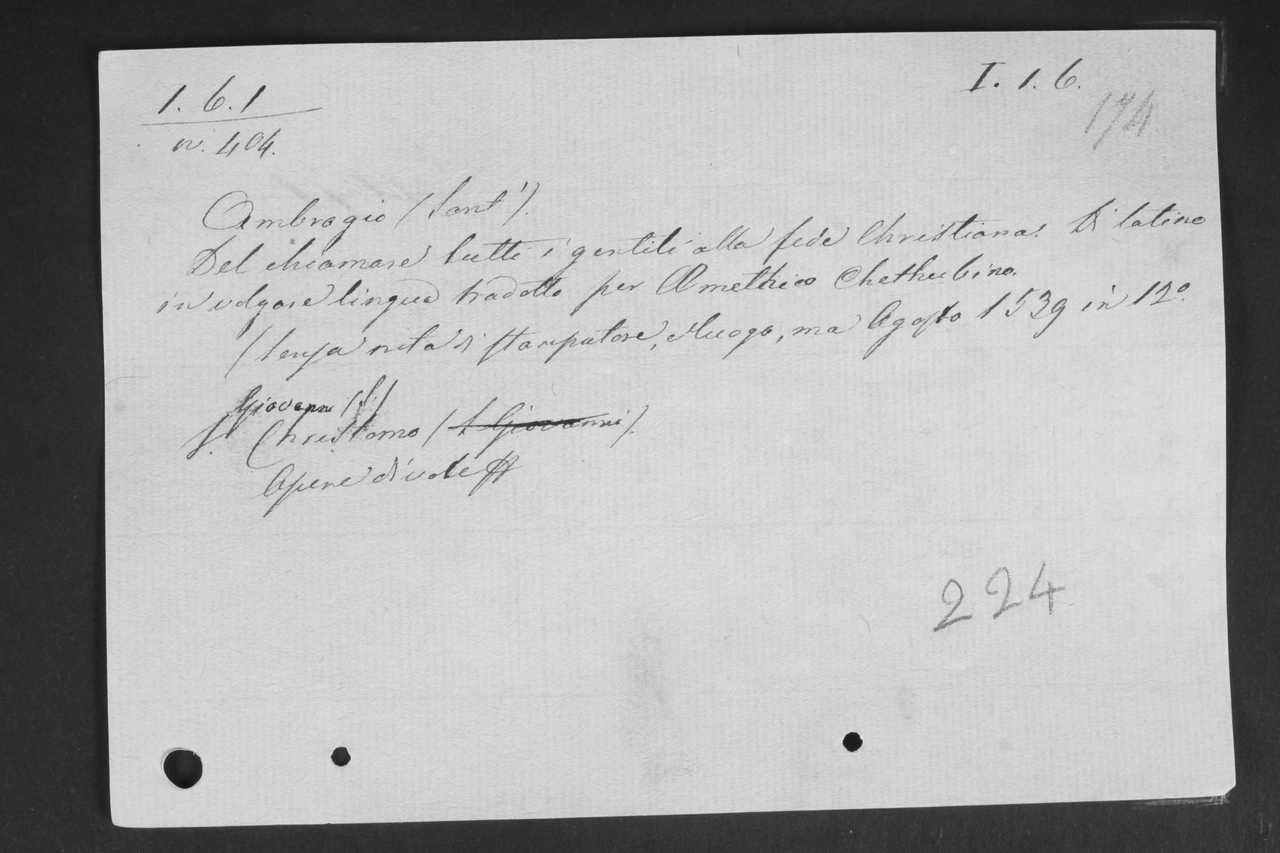 I. 6. 1
n. 404.
I. 1. 6.
174
Ambrogio (Sant').
Del chiamare tutte i gentili alla fede Christiana. Di latino
in volgare lingua tradotto per Amethico Chethubino.
(senza nota di stampatore, e luogo, ma Agosto 1539 in 12º.
Giovanni (S.)
f. Christomo (S Giovanni).
Opere divote
224